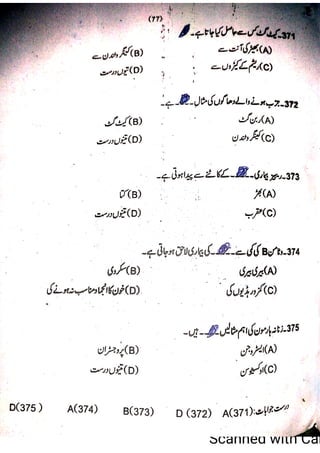 (77)
371- کیٹ گٹ کس سے حاصل کیا جاتا ہے۔
(A) بھیڑ کی آنت سے (B) کینگرو ٹنڈن سے
(C) ریشم کے کیڑوں سے (D) تینوں درست
372- جذب ہونے والے دھاگوں کی مثال ۔ ہے۔
(A) ربن گٹ (B) کیٹ گٹ
(C) کینگرو ٹنڈن (D) تینوں درست
373- ریبیز بیماری۔ کے کاٹنے سے پیدا ہوتی ہے۔
(A) بھڑ (B) کتا
(C) عقرب (D) تینوں درست
374- وٹامن B کی کمی سے۔ کی بیماری لاحق ہو جاتی ہے۔
(A) بیری بیری (B) سکروی
(C) کمزور ہڈیوں کی (D) خون کا انجماد مناسب نہ ہونے کی
375- زنانہ ہارمون کی اہم مثالیں۔ ہیں۔
(A) ایسٹروجن (B) پروجسٹران
(C) اوکسیٹوسن (D) تینوں درست
درست جوابات: A(371) D (372) B(373) A(374) D(375 )
Scanned with Ca